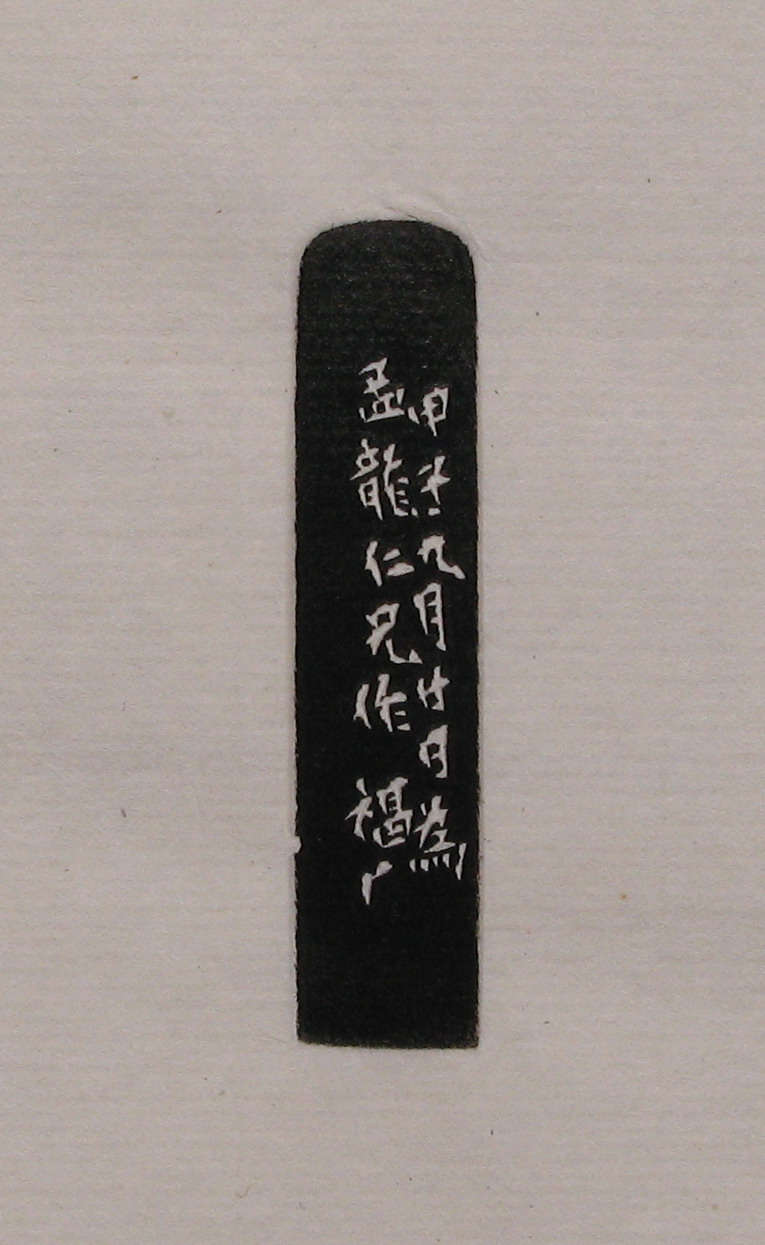 甲子九月廿日為
孟龍仁兄作 福厂